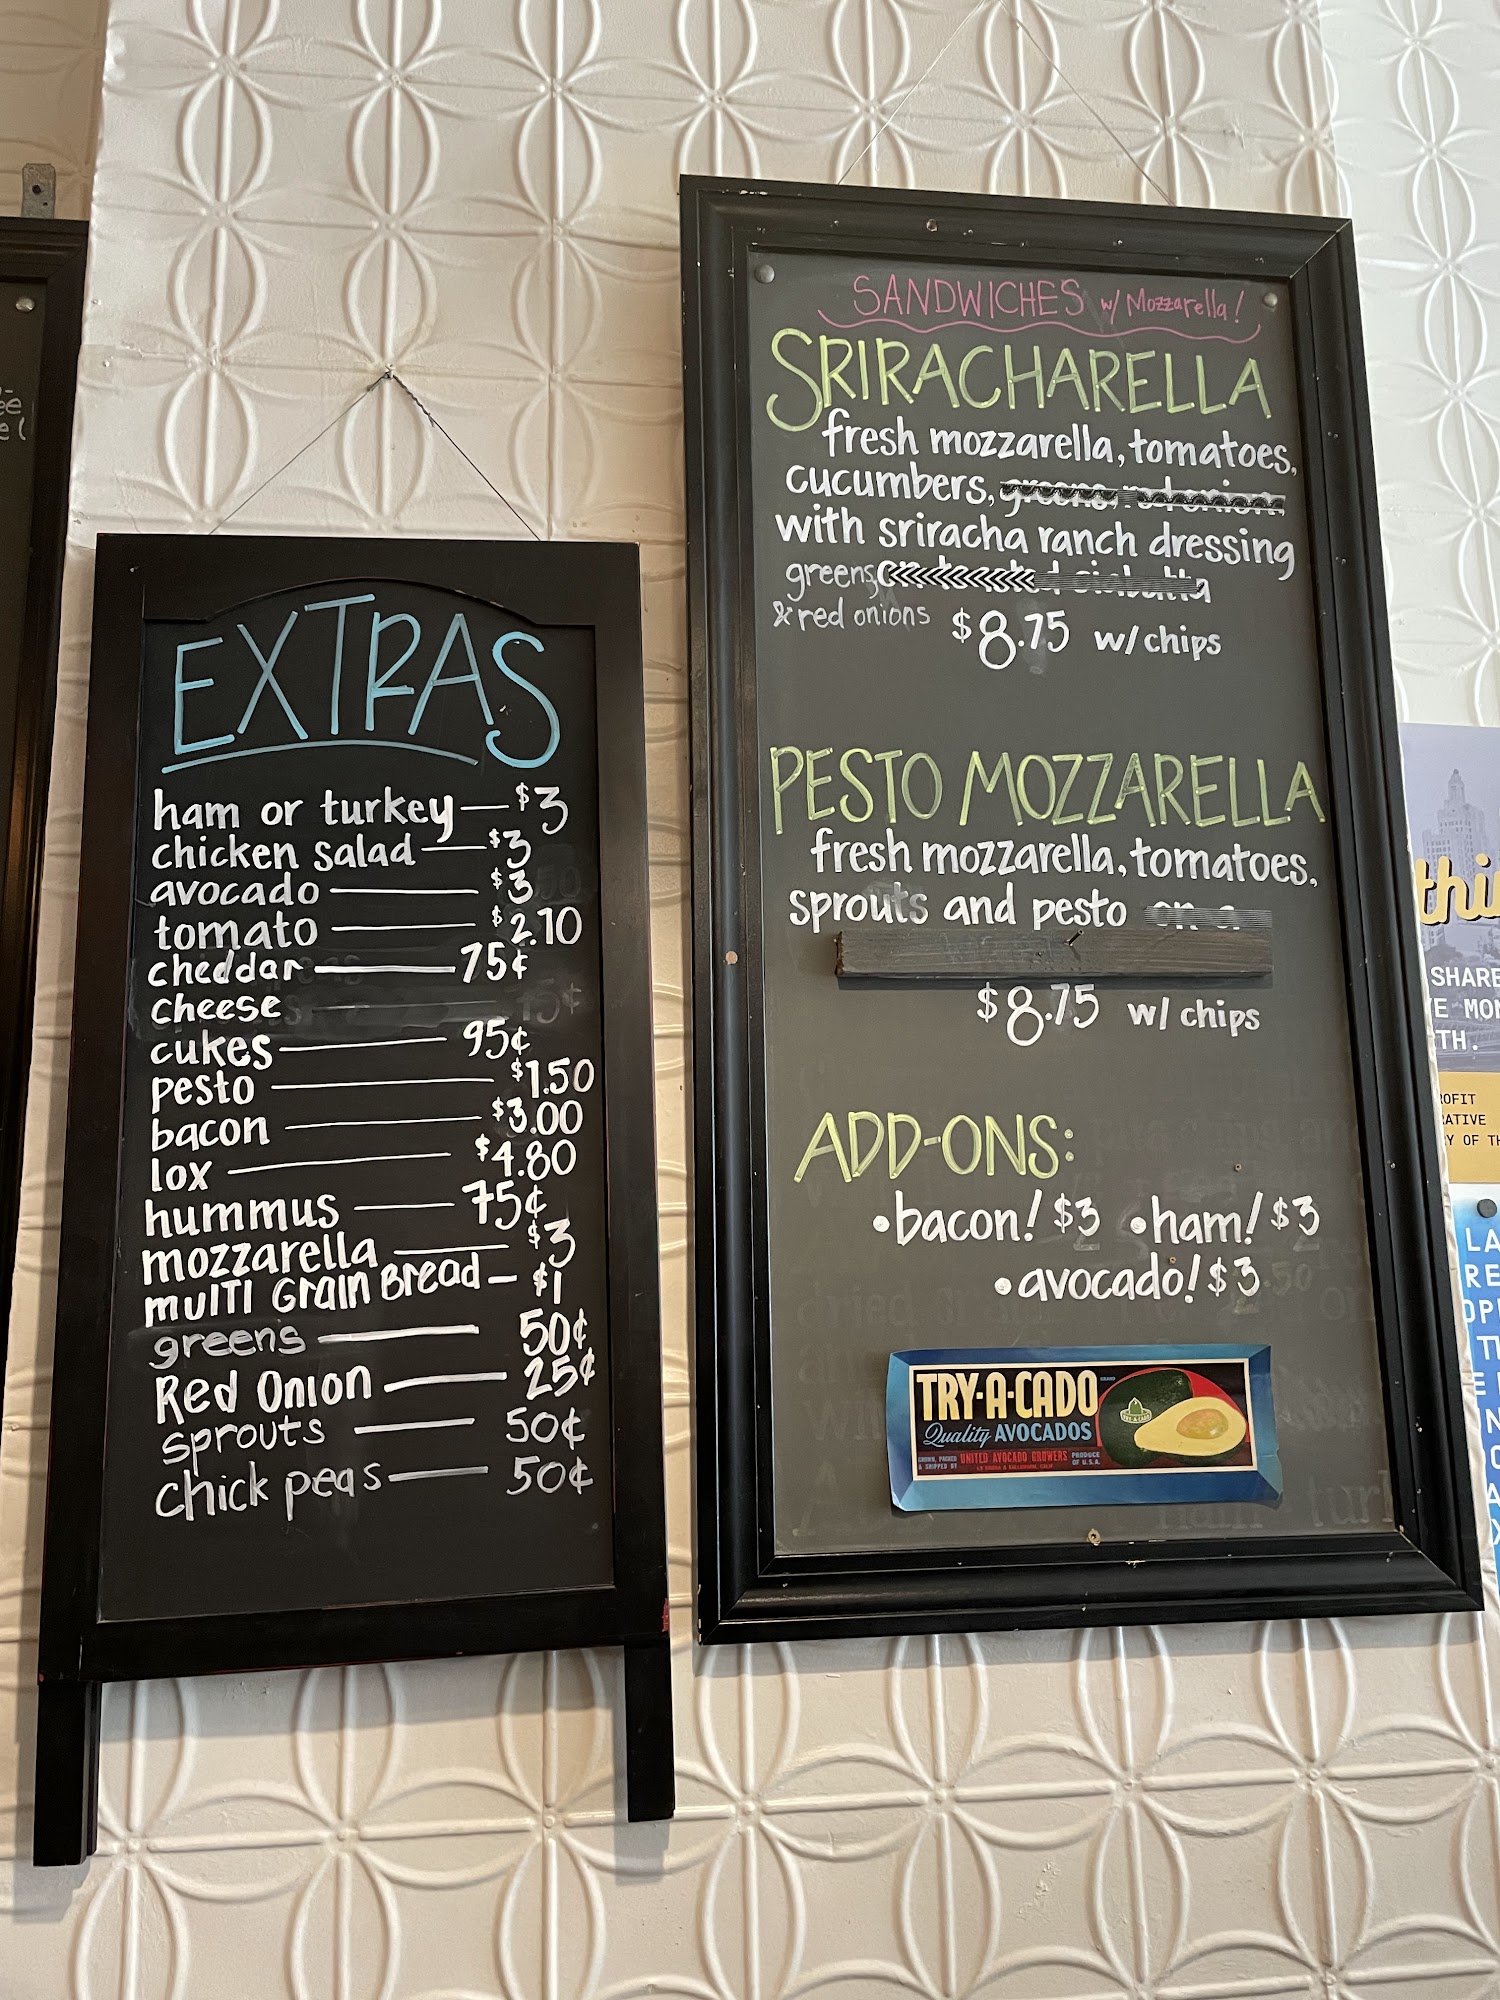 EXTRAS
ham or turkey — $3
chicken salad — $3
avocado — $3
tomato — $2.10
cheddar — 75¢
cheese
cukes — 95¢
pesto — $1.50
bacon — $3.00
lox — $4.80
hummus — 75¢
mozzarella — $3
multi Grain Bread — $1
greens — 50¢
Red Onion — 25¢
sprouts — 50¢
chick peas — 50¢
SANDWICHES w/ Mozzarella!
SRIRACHARELLA
fresh mozzarella, tomatoes,
cucumbers,
with sriracha ranch dressing
greens,
& red onions $8.75 w/ chips
PESTO MOZZARELLA
fresh mozzarella, tomatoes,
sprouts and pesto
$8.75 w/ chips
ADD-ONS:
•bacon! $3 •ham! $3
•avocado! $3
TRY-A-CADO
BRAND
Quality AVOCADOS
GROWN, PACKED & SHIPPED BY UNITED AVOCADO GROWERS PRODUCE OF U.S.A.
thi
SHARE
E MON
TH.
OFIT
ATIVE
Y OF TH